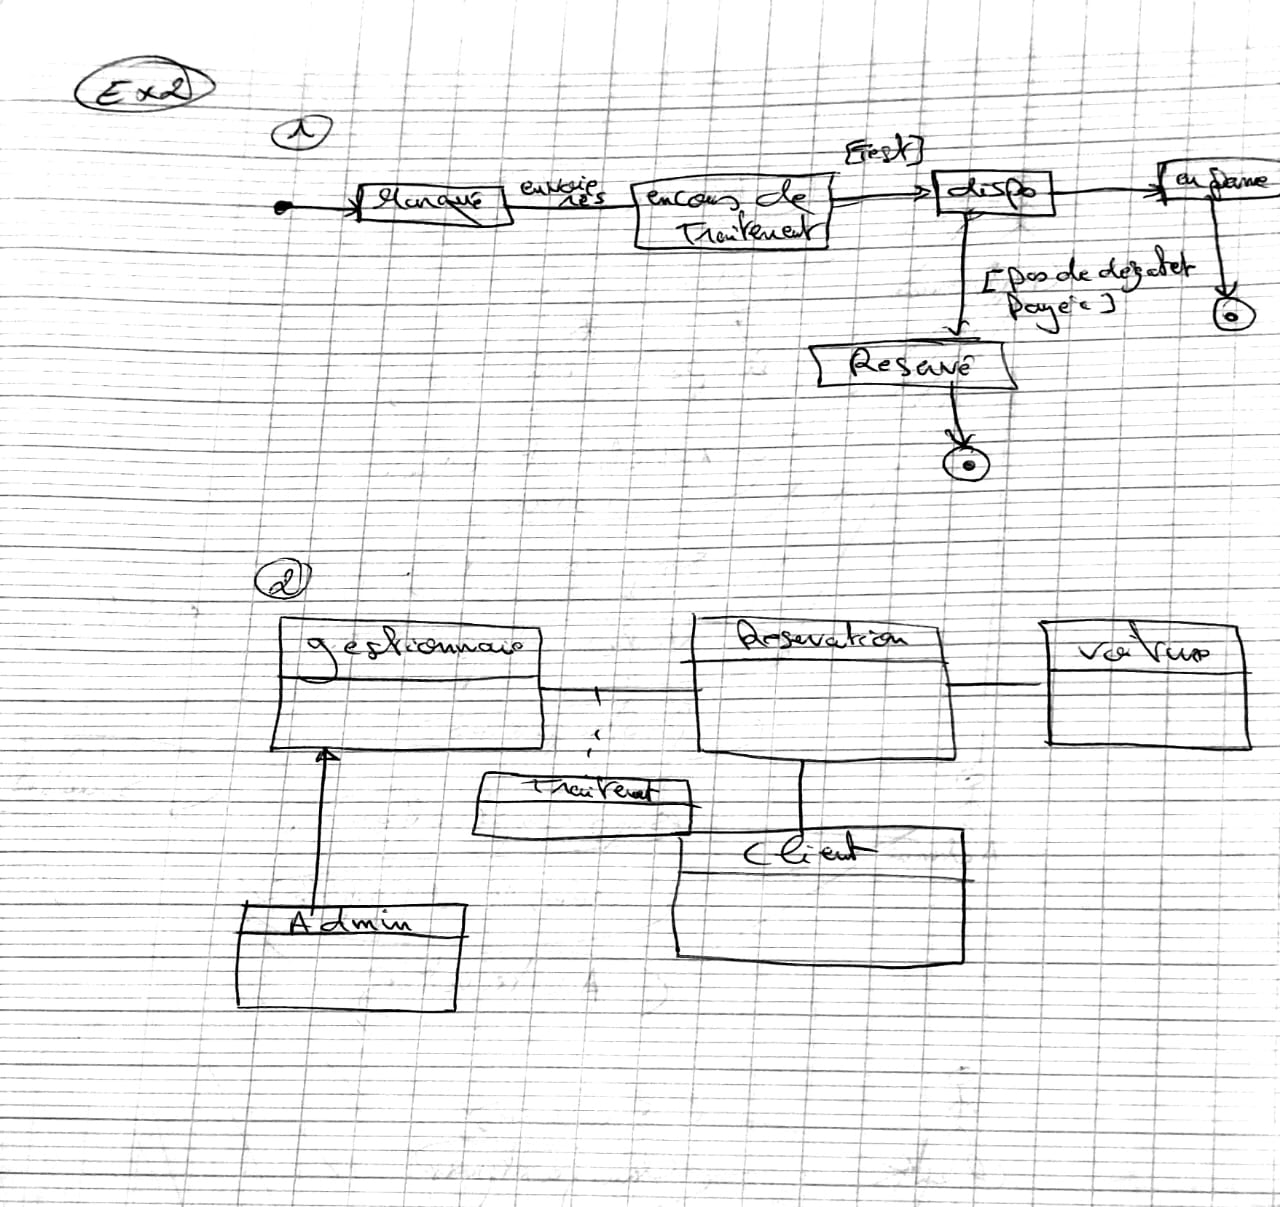 Ex2
1
Manqué
envoie
res
encours de
Traitement
[Test]
dispo
en pane
[pas de dégat et
payée]
Reservé
2
gestionnaire
Reservation
voiture
Traitement
Client
Admin